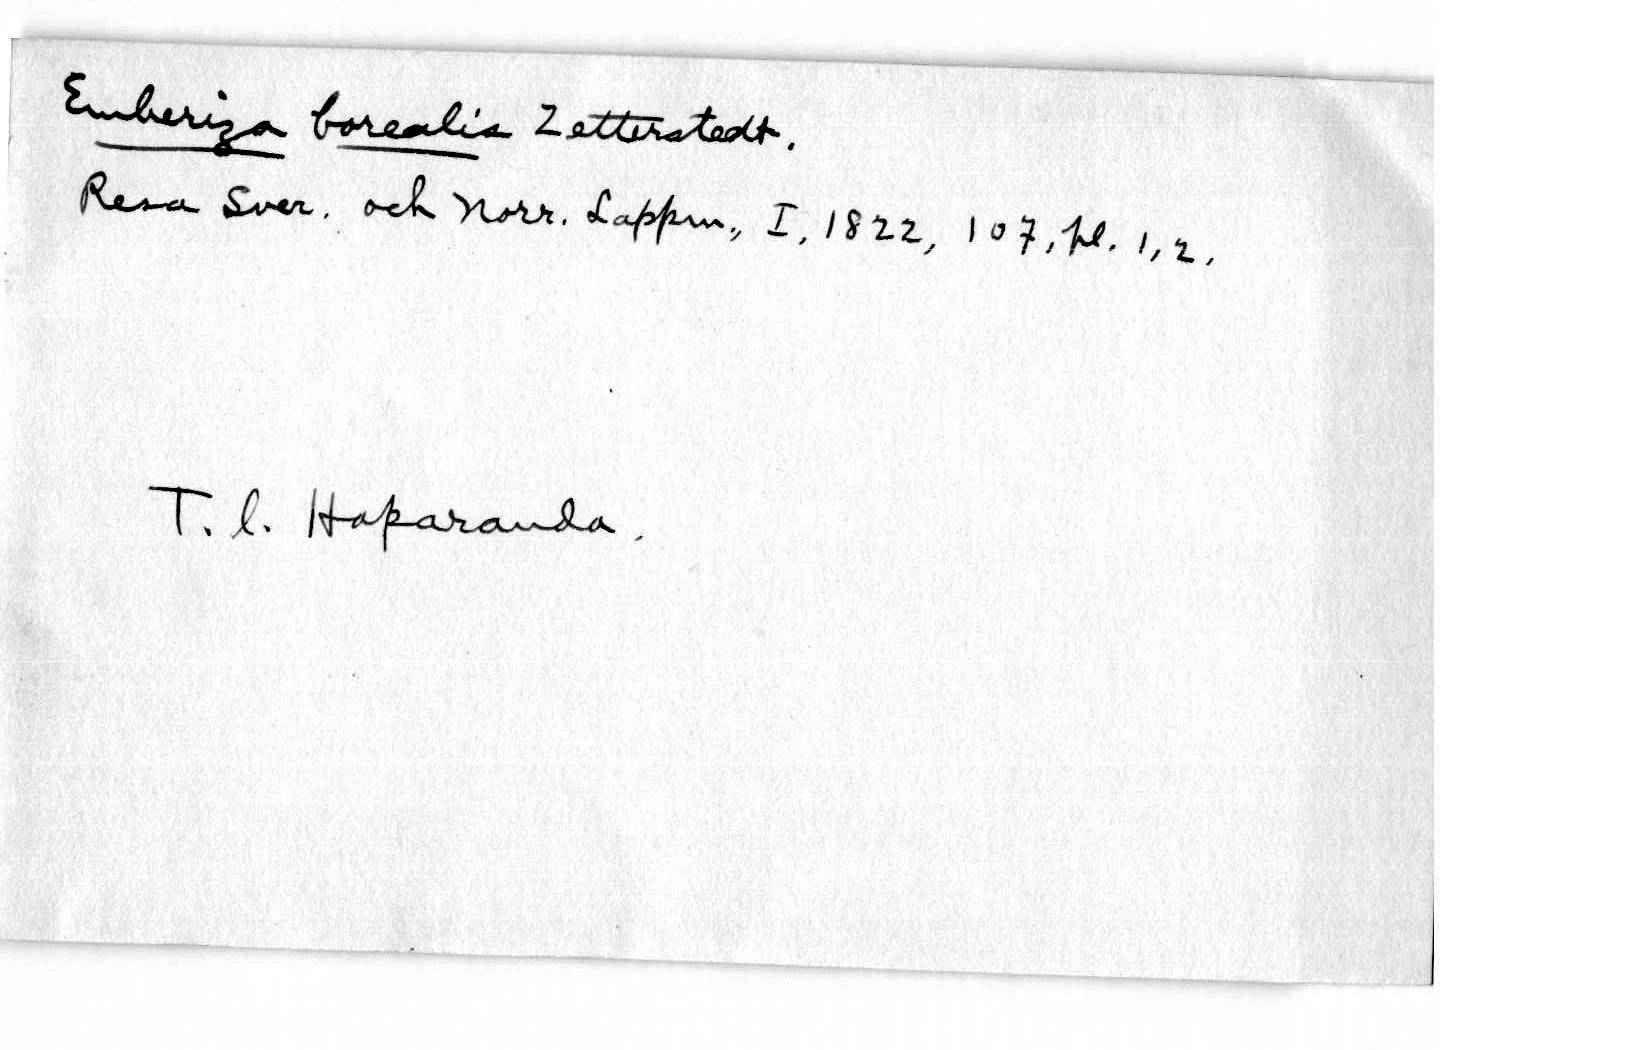 Emberiza borealis Zetterstedt.
Resa Sver. och Norr. Lappm., I, 1822, 107, pl. 1, 2.
T. l. Haparanda.